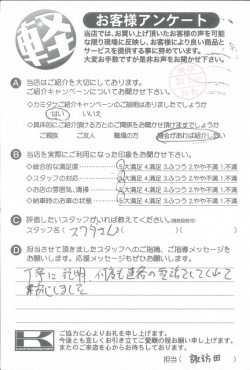 軽
お客様アンケート
当店では、お買い上げ頂いたお客様の声を可能
な限り現場に反映し、お客様により良い商品と
サービスを提供する事に努めています。
大変お手数ですが是非お声をお聞かせ下さい。
A 当店はご紹介を大切にしております。
ご紹介キャンペーンについてお聞かせ下さい。
・カミタケご紹介キャンペーンのご説明はありましたでしょうか
はい いいえ
・具体的にご紹介頂ける方とのご関係をお聞かせ頂けますでしょうか
ご親族 ご友人 職場の方 機会があれば紹介したい
B 当店を実際にご利用になった印象をお聞かせ下さい。
・総合的な満足度 5.大満足 4.満足 3.ふつう 2.やや不満 1.不満
・スタッフの対応 5.大満足 4.満足 3.ふつう 2.やや不満 1.不満
・お店の雰囲気、清掃 5.大満足 4.満足 3.ふつう 2.やや不満 1.不満
・納車時のお車の状態 5.大満足 4.満足 3.ふつう 2.やや不満 1.不満
C 評価したいスタッフがいれば教えてください。(複数回答可)
スタッフ名( )( )
D 担当させて頂きましたスタッフへのご指摘、ご指導メッセージを
お願いします。応援メッセージもぜひお願いします。
丁寧に説明、何度も連絡
K
ご協力に心よりお礼を申し上げます。
今後とも宜しくお引き立てご愛顧の程お願い申し上げます。
またのご来店を心からお待ちしております。
担当( 諏訪田 )